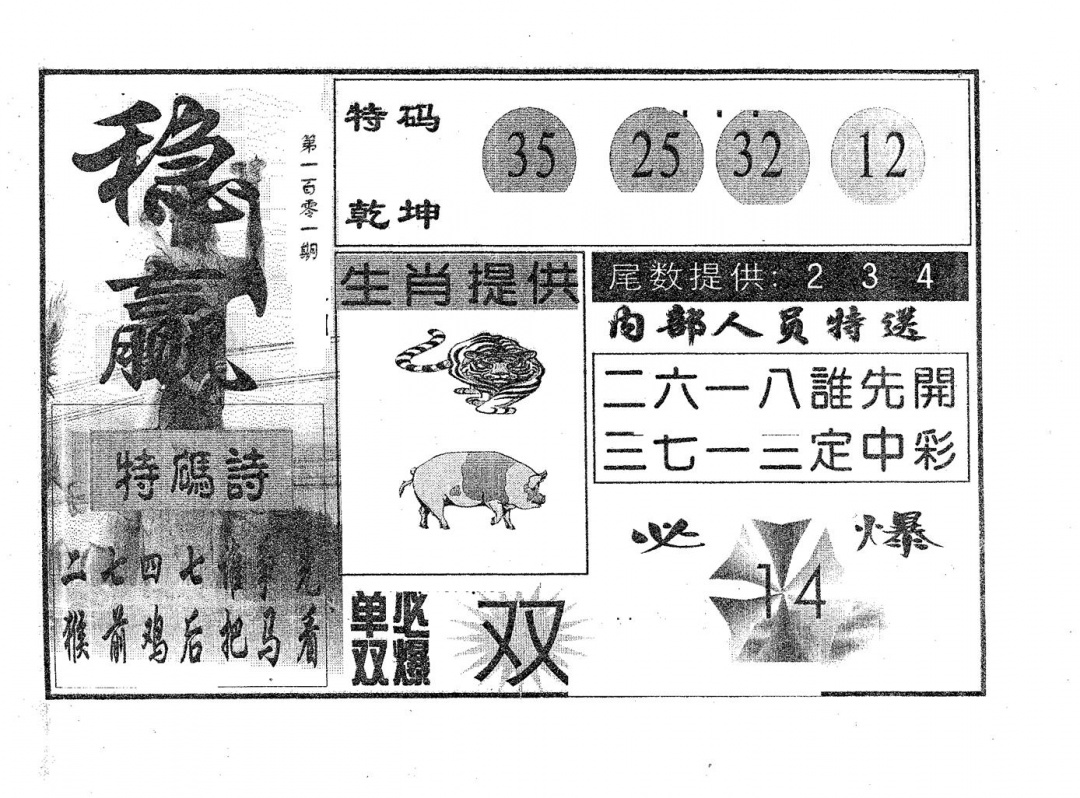 稳赢
第一百零一期
特码诗
二七四七谁争先
猴前鸡后把马看
特码
乾坤
35 25 32 12
生肖提供
单双必爆
双
尾数提供: 2 3 4
内部人员特送
二六一八誰先開
三七一三定中彩
必爆
14